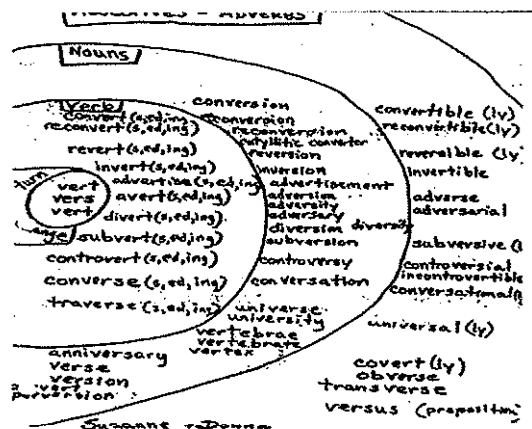 ADJECTIVES - ADVERBS
Nouns
Verb
convert (s,ed,ing)
reconvert (s,ed,ing)
revert (s,ed,ing)
invert (s,ed,ing)
advertise (s,ed,ing)
avert (s,ed,ing)
divert (s,ed,ing)
subvert (s,ed,ing)
controvert (s,ed,ing)
converse (s,ed,ing)
traverse (s,ed,ing)
turn
vert
vers
vert
conversion
reconversion
catyllitic converter
reversion
inversion
advertisement
adversity
adversary
diversion diversity
subversion
controversy
conversation
universe
university
vertebrae
vertebrate
vertex
anniversary
verse
version
perversion
convertible (ly)
reconvertible (ly)
reversible (ly
invertible
adverse
adversarial
subversive (l
controversial
incontrovertible
conversational
universal (ly)
covert (ly)
obverse
transverse
versus (preposition)
Suzanne